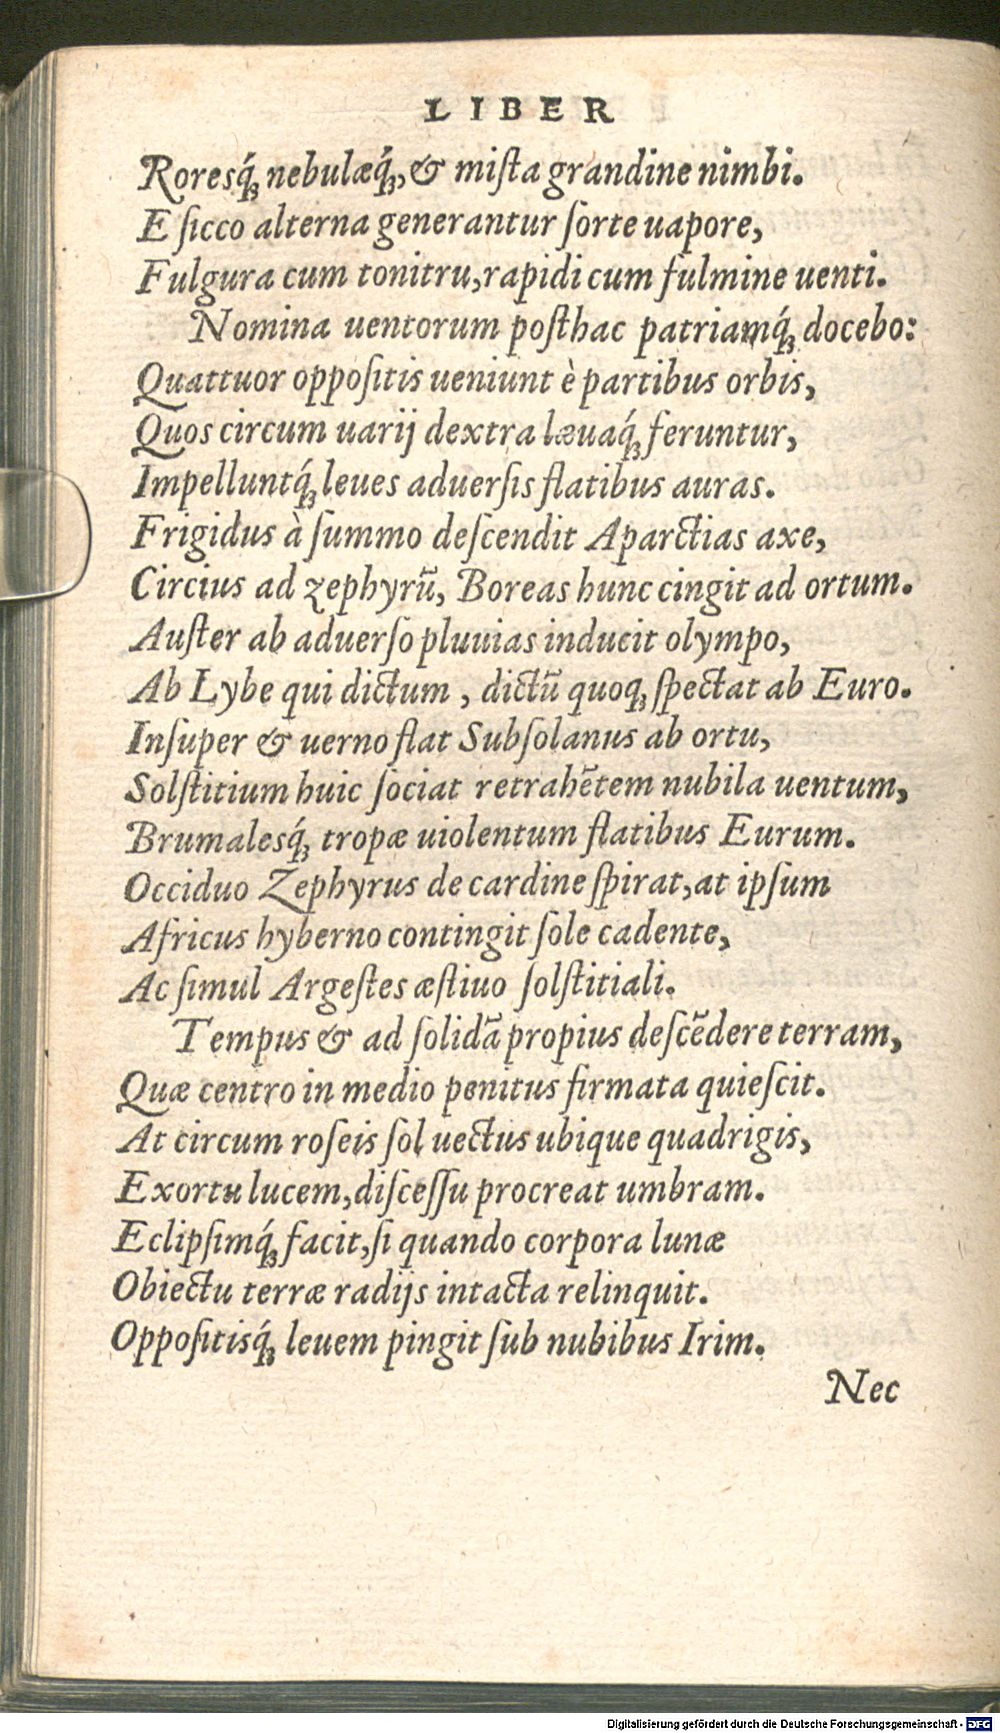 LIBER
Roresq́ꝫ nebulæq́ꝫ, & miſta grandine nimbi.
E ſicco alterna generantur ſorte uapore,
Fulgura cum tonitru, rapidi cum fulmine uenti.
Nomina uentorum poſthac patriamq́ꝫ docebo:
Quattuor oppoſitis ueniunt è partibus orbis,
Quos circum uarij dextra læuaq́ꝫ feruntur,
Impelluntq́ꝫ leues aduerſis flatibus auras.
Frigidus à ſummo deſcendit Aparctias axe,
Circius ad zephyrũ, Boreas hunc cingit ad ortum.
Auſter ab aduerſo pluuias inducit olympo,
Ab Lybe qui dictum, dictũ quoqꝫ ſpectat ab Euro.
Inſuper & uerno flat Subſolanus ab ortu,
Solſtitium huic ſociat retrahẽtem nubila uentum,
Brumalesq́ꝫ tropæ uiolentum flatibus Eurum.
Occiduo Zephyrus de cardine ſpirat, at ipſum
Africus hyberno contingit ſole cadente,
Ac ſimul Argeſtes æſtiuo ſolſtitiali.
Tempus & ad ſolidã propius deſcẽdere terram,
Quæ centro in medio penitus firmata quieſcit.
At circum roſeis ſol uectus ubique quadrigis,
Exortu lucem, diſceſſu procreat umbram.
Eclipſimq́ꝫ facit, ſi quando corpora lunæ
Obiectu terræ radijs intacta relinquit.
Oppoſitisq́ꝫ leuem pingit ſub nubibus Irim.
Nec
Digitalisierung gefördert durch die Deutsche Forschungsgemeinschaft - DFG